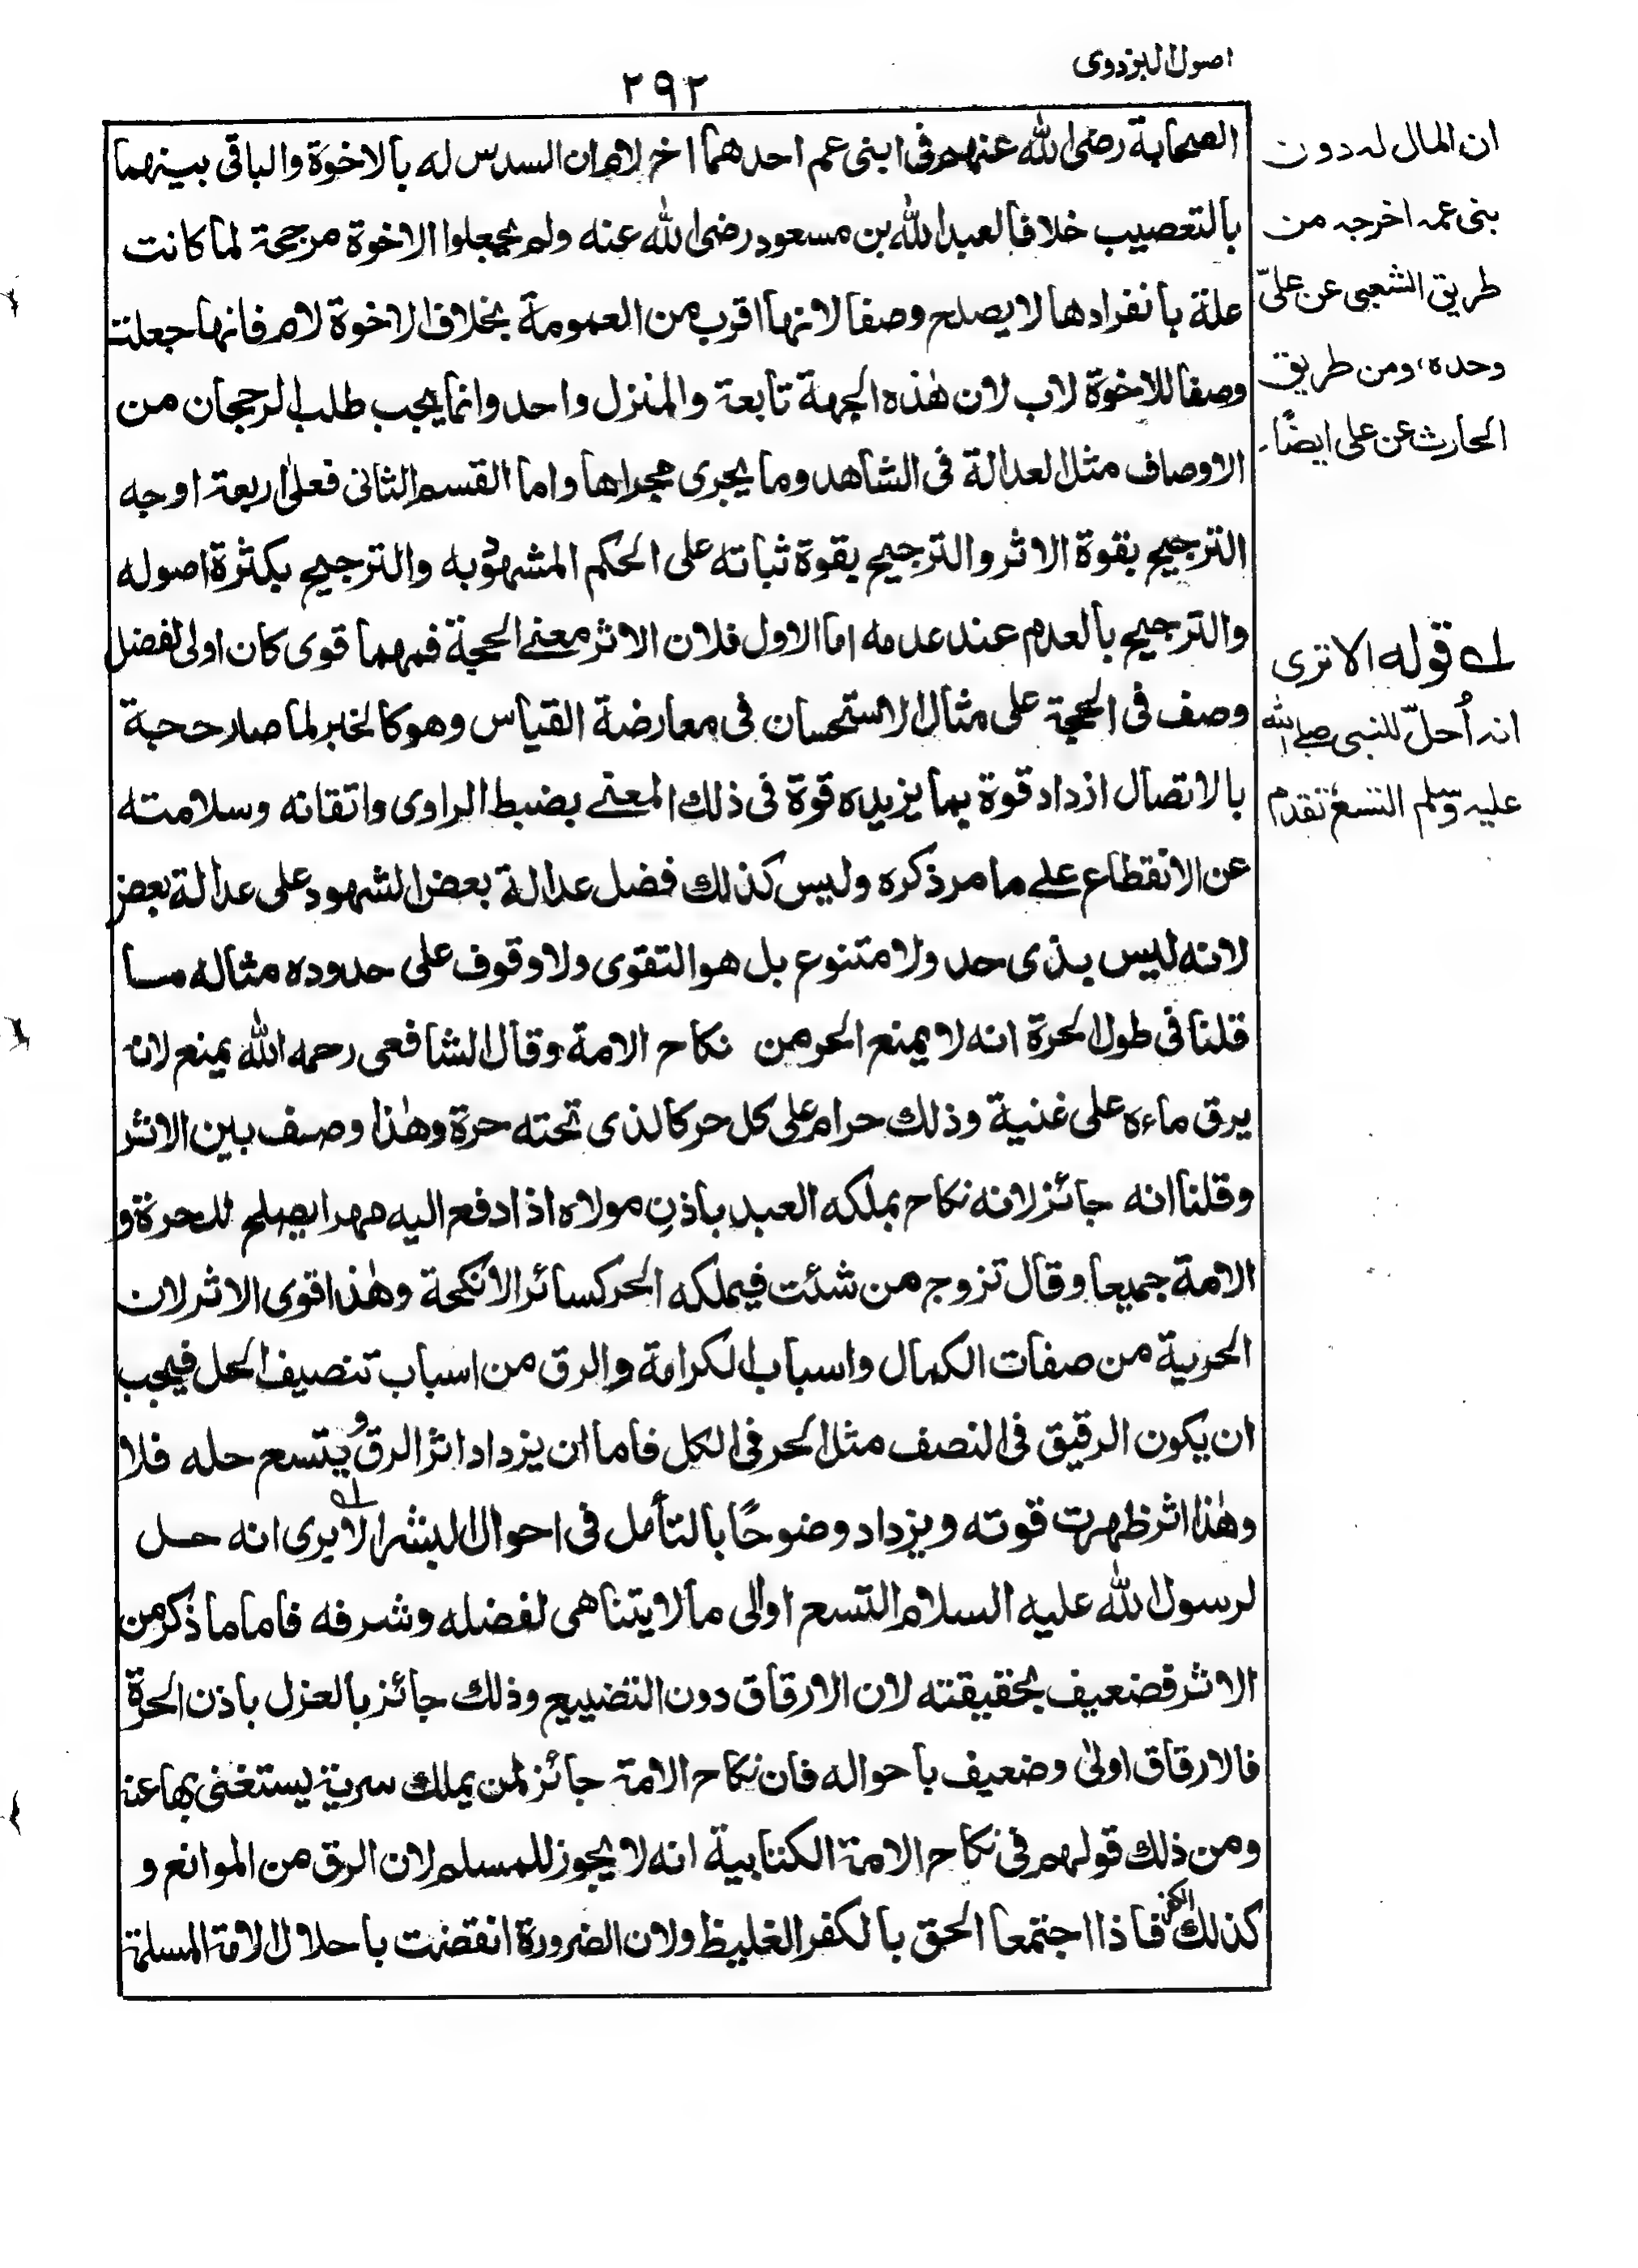 اصول البزدوی
٢٩٢
الصحابة رضی الله عنهم فی ابنی عم احدهما اخ لام ان السدس له بالاخوة والباقی بینهما
بالتعصیب خلافا لعبد الله بن مسعود رضی الله عنه ولم یجعلوا الاخوة مرجحة لما کانت
علة بانفرادها لا یصلح وصفا لانها اقرب من العمومة بخلاف الاخوة لام فانها جعلت
وصفا للاخوة لاب لان هٰذه الجهة تابعة والمنزل واحد وانما یجب طلب الرجحان من
الاوصاف مثل العدالة فی الشاهد وما یجری مجراها واما القسم الثانی فعلیٰ اربعة اوجه
الترجیح بقوة الاثر والترجیح بقوة ثباته علی الحکم المشهود به والترجیح بکثرة اصوله
والترجیح بالعدم عند عدمه اما الاول فلان الاثر معنے الحجة فمهما قوی کان اولی لفضل
وصف فی الحجة علی مثال الاستحسان فی معارضة القیاس وهو کالخبر لما صار حجة
بالاتصال ازداد قوة بما یزیده قوة فی ذلك المعنے بضبط الراوی واتقانه وسلامته
عن الانقطاع علے ما مر ذکره ولیس کذلك فضل عدالة بعض الشهود علی عدالة بعض
لانه لیس بذی حد ولا متنوع بل هو التقوی ولا وقوف علی حدوده مثاله ما
قلنا فی طول الحرة انه لا یمنع الحر من نکاح الامة وقال الشافعی رحمه الله یمنع لانه
یرق ماءه علی غنیة وذلك حرام علی کل حر کالذی تحته حرة وهٰذا وصف بین الاثر
وقلنا انه جائز لانه نکاح یملکه العبد باذن مولاه اذا دفع الیه مهرا یصلح للحرة و
الامة جمیعا وقال تزوج من شئت فیملکه الحر کسائر الانکحة وهٰذا اقوی الاثر لان
الحریة من صفات الکمال واسباب الکرامة والرق من اسباب تنصیف الحل فیجب
ان یکون الرقیق فی النصف مثل الحر فی الکل فاما ان یزداد اثر الرق و یتسع حله فلا
وهٰذا اثر ظهرت قوته ویزداد وضوحًا بالتأمل فی احوال البشر الا یری انه حل
لرسول الله علیه السلام التسع او الی ما لا یتناهی لفضله وشرفه فاما ما ذکر من
الاثر فضعیف بحقیقته لان الارقاق دون التضییع وذلك جائز بالعزل باذن الحرة
فالارقاق اولیٰ وضعیف باحواله فان نکاح الامة جائز لمن یملك سریة یستغنی بها عنه
ومن ذلك قولهم فی نکاح الامة الکتابیة انه لا یجوز للمسلم لان الرق من الموانع و
کذلك الکفر فاذا اجتمعا الحق بالکفر الغلیظ ولان الضرورة انقضت باحلال الامة المسلمة
ان المال له دون
بنی عمه اخرجه من
طریق الشعبی عن علیّ
وحده، ومن طریق
الحارث عن علی ایضًا۔
لے قوله الا تری
انه اُحلّ للنبی صلے الله
علیه وسلم التسع تقدم